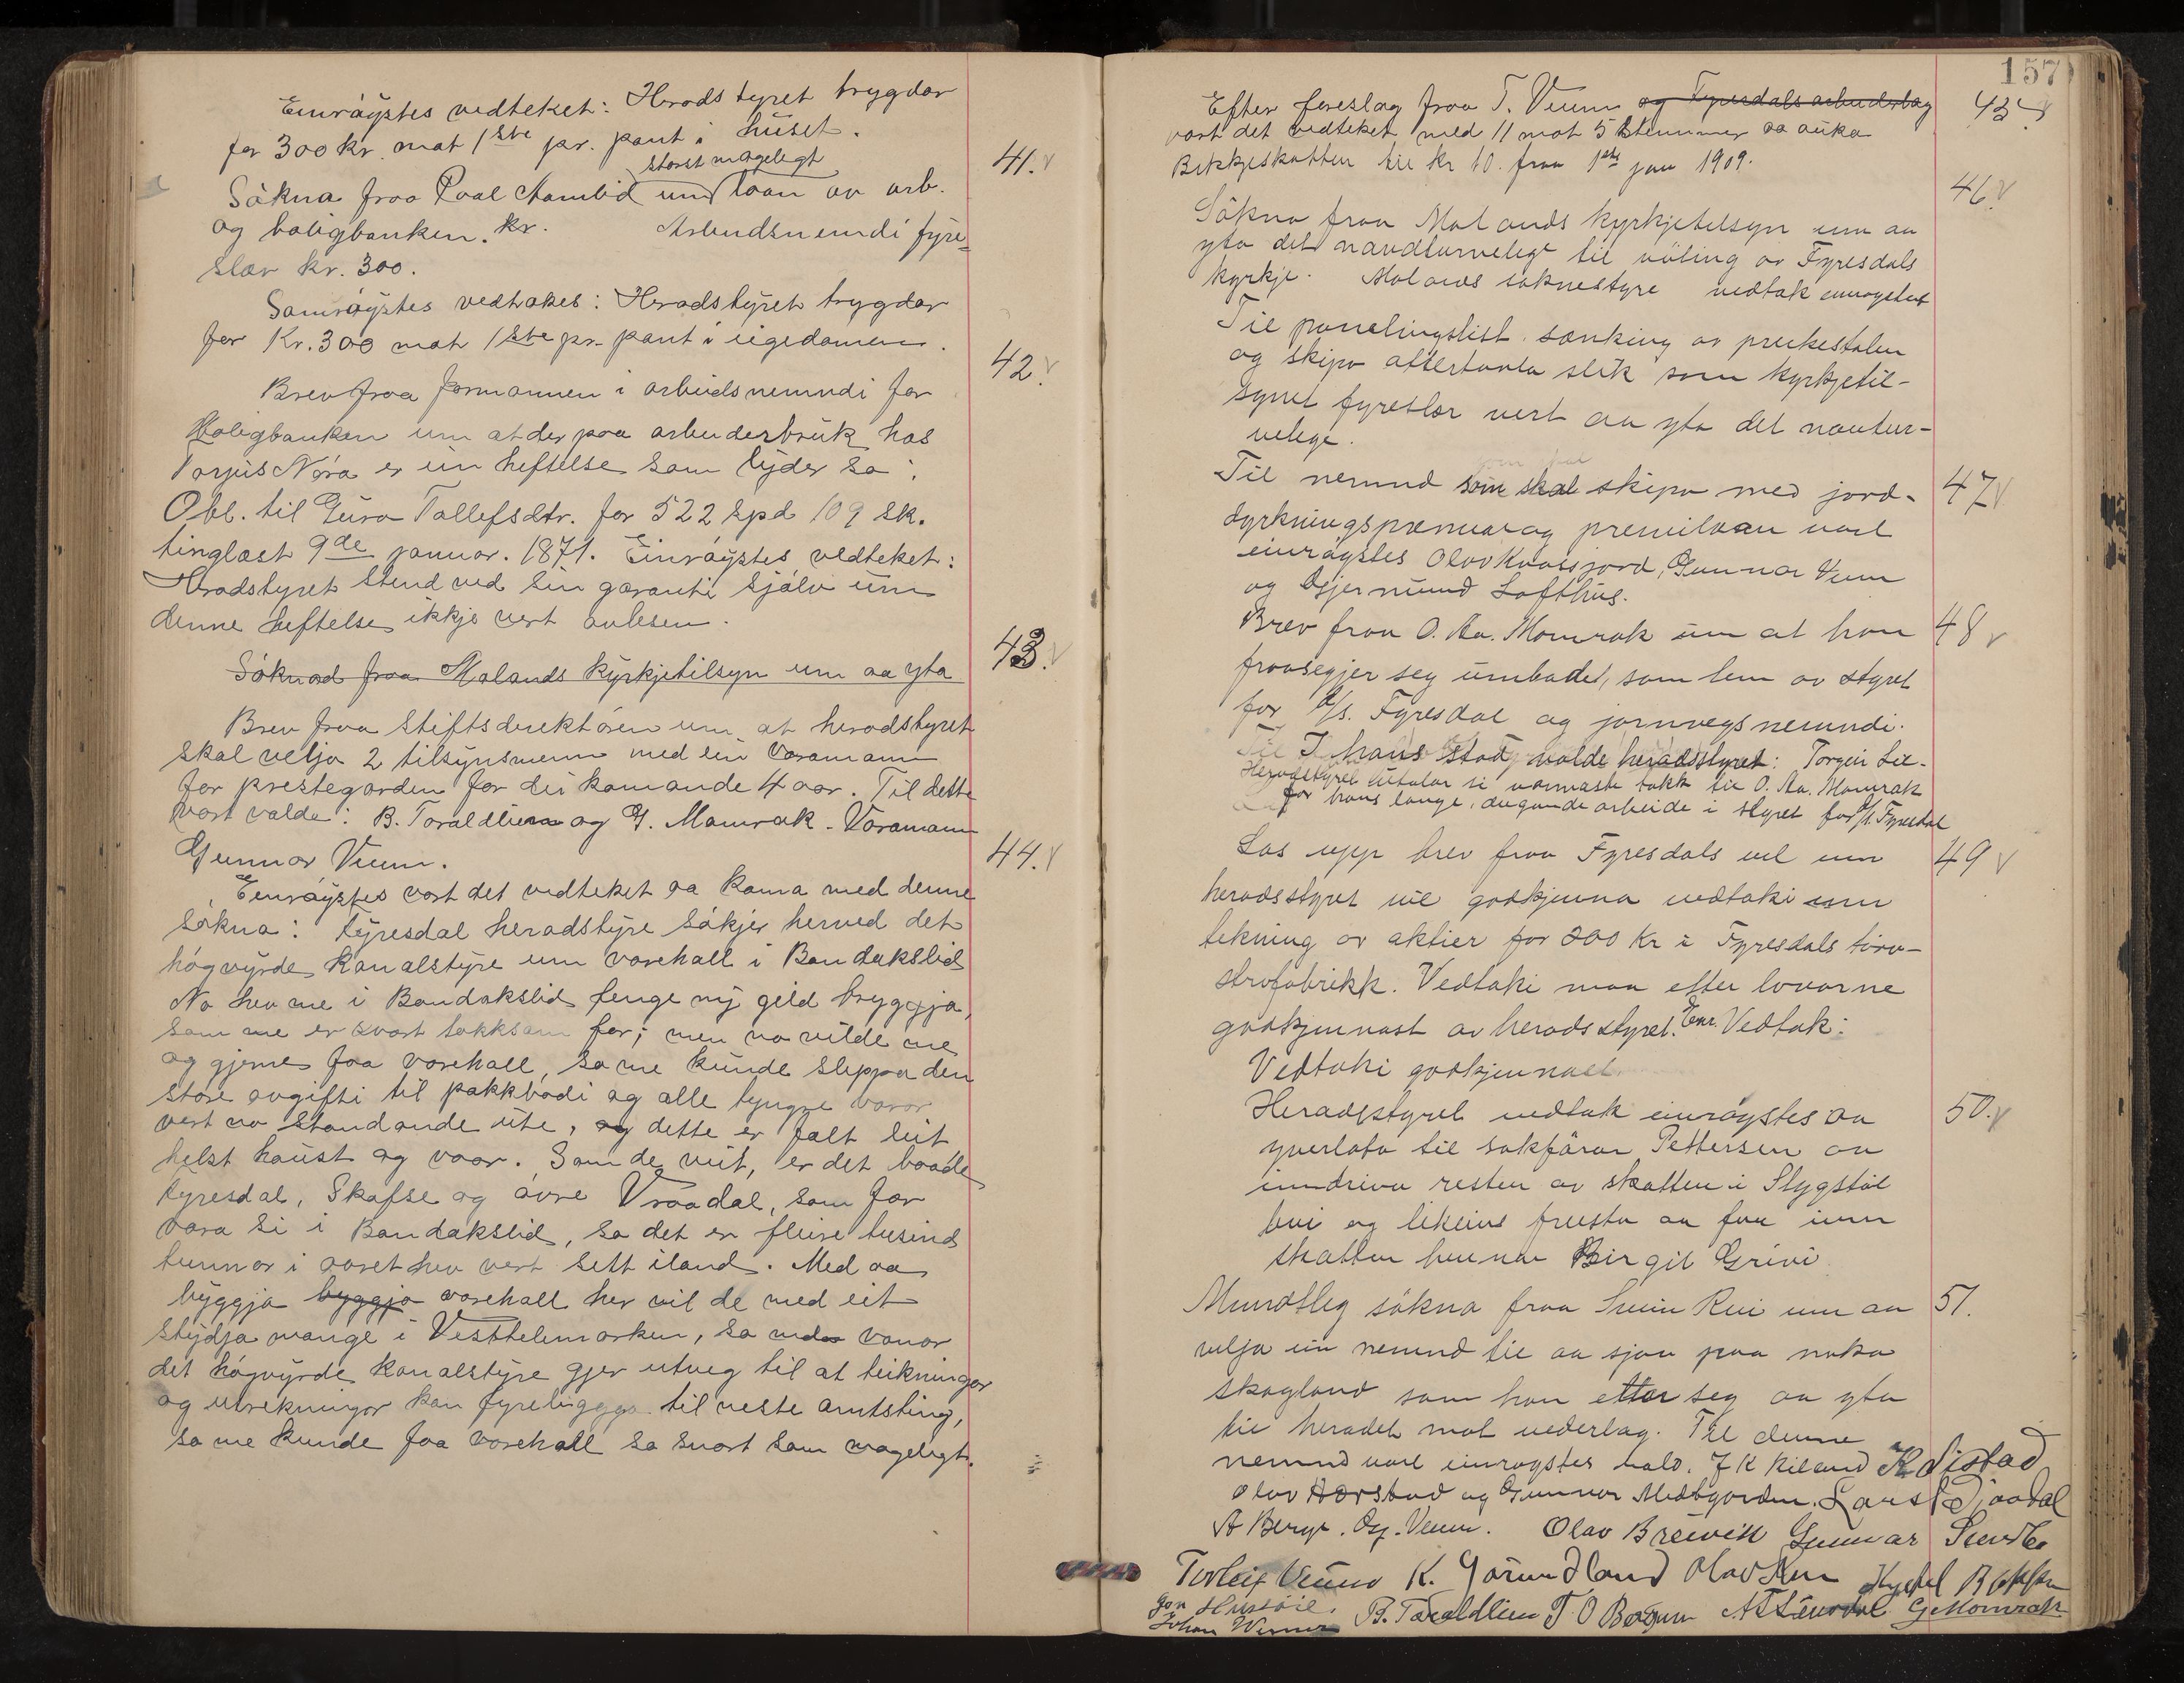 Einróystes vedteket: Heradstyret trygdar
for 300 kr. mot 1ste pr. pant i huset.
41.
Sökna fraa Paal Aamlid um störst mogelegt laan av arb.
og boligbanken. kr. Arbeidsnemndi fyre=
slær kr. 300.
Samróystes vedtakes: Heradstyret trygdar
for Kr. 300 mot 1ste pr. pant i eigedomen.
42.
Brev fraa formannen i arbeidsnemndi for
Boligbanken um at der paa arbeiderbruk hos
Torjus Nóra er ein heftelse som lyder so:
Obl. til Guro Tallefsdtr. for 522 spd 109 sk.
tinglæst 9de januar. 1871. Einróystes vedteket:
Heradstyret stend ved sin garanti sjólv um
denne heftelse ikkje vert avlesen.
43.
Sóknad fraa Molands kyrkjetilsyn um aa yta
Brev fraa stiftsdirektóren um at heradstyret
skal velja 2 tilsynsmenn med ein varamann
for prestegarden for dei komande 4 aar. Til dette
vart valde: B. Taraldlien og G. Momrak. Varamann
Gunnar Veum.
44.
Einróystes vart det vedteket aa koma med denne
sókna: Fyresdal heradstyre sókjer herved det
hógvyrde kanalstyre um varehall i Bandakslid
No hev me i Bandakslid fenge ny gild bryggja,
som me er svært takksam for; men no vilde me
og gjerne faa varehall, so me kunde sleppa den
store avgifti til pakkbodi og alle tyngre varor
vert no standande ute, og dette er fælt leit
helst haust og vaar. Som de veit, er det baade
Fyresdal, Skafse og óvre Vraadal, som fær
vara si i Bandakslid, so det er fleire tusind
tunnor i aaret hev vert sett iland. Med aa
byggja byggja varehall her vil de med eit
stydja mange i Vesttelemarken, so me vonar
det hógvyrde kanalstyre gjer utveg til at teikningar
og utrekningar kan fyreliggga til neste amtsting,
so me kunde faa varehall so snart som mogelegt.
157
45.
Efter foreslag fraa T. Veum og Fyresdals arbeidarlag
vart det vedteket med 11 mot 5 stemmer aa auka
Bikkjeskatten til kr 10. fraa 1ste jan 1909.
46.
Sökna fraa Molands kyrkjetilsyn um aa
yta det naudturvelege til völing av Fyresdals
kyrkje. Molands soknestyre vedtok einroystes
Til panelingslist, sænking av preikestolen
og skipa altertavla slik som kyrkjetil-
synet fyreslær vert aa yta det nautur-
velege.
47.
Til nemnd som skal skipa med jord-
dyrkningspremiar og premilaan vart
einröystes Olav Kvasjord, Gunnar Veum
og Gjermund Lofthus.
48
Brev fraa O. Aa. Momrak um at han
fraasegjer seg umbodet, som lem av styret
for A/s. Fyresdal og jarnvegsnemndi.
I hans stad valde heradsstyret: Torgein Lie.
Heradstyret uttalar si varmaste takk til O. Aa. Momrak
for hans lange, dugande arbeide i styret for A/s. Fyresdal
49
Las upp brev fraa Fyresdals vel um
heradsstyret vil godkjenna vedtaki um
tekning av aktier for 200 kr i Fyresdals törv-
strofabrikk. Vedtaki maa etter lovarne
godkjennast av heradsstyret. Enr. Vedtak:
Vedtaki godkjennast
50.
Heradsstyret vedtok einröystes aa
yverlata til sakförar Pettersen aa
inndriva resten av skatten i Stygstöl
bui og likeins freista aa faa inn
skatten hennar Birgit Grivi
51.
Mundtleg sökna fraa Svein Rui um aa
velja ein nemnd til aa sjaa paa noko
skogland som han etlar seg aa yta
til heradet mot vederlag. Til denne
nemnd vart einroystes vald. J K Kiland
Olav Aarstad og Gunnar Midtgarden. Lars Djaadal
A Berge. Og. Veum. Olav Breivik Gunnar
Torleif Veum K. Gaarundland Olav Kyrkjebö
Jon Hustóil. B. Taraldlien T O Bergum G. Momrak
Johan